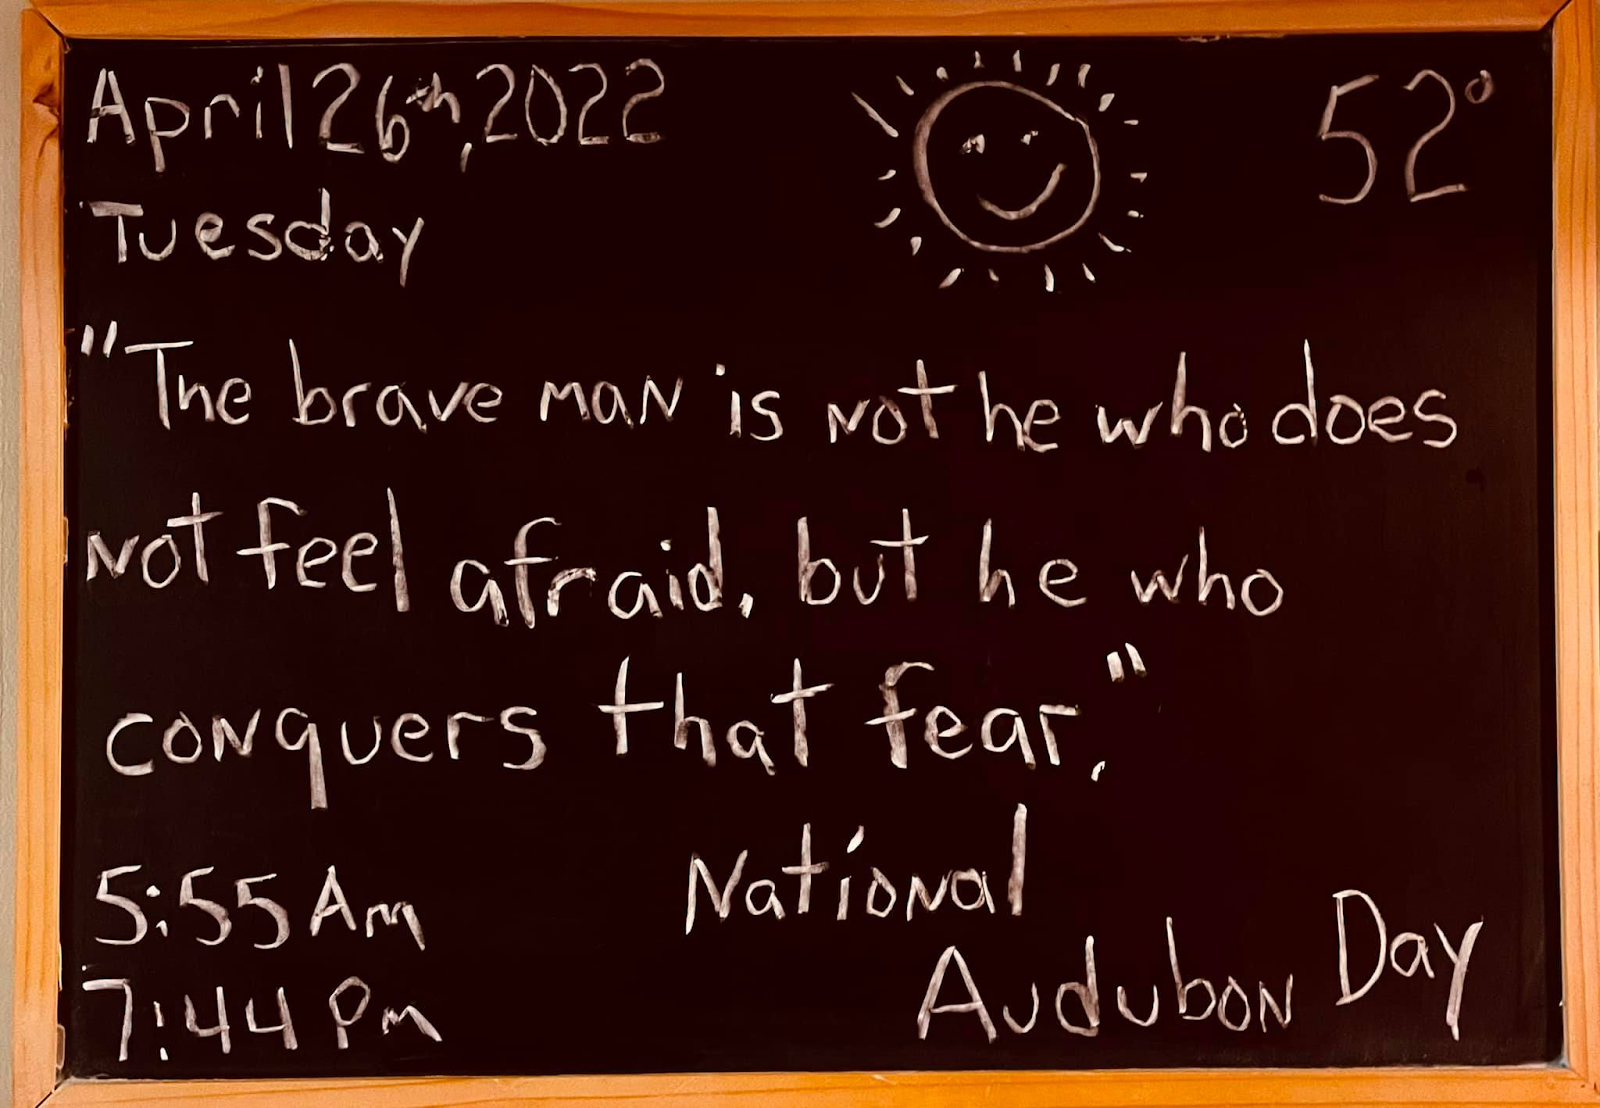 April 26th, 2022
52°
Tuesday
"The brave man is not he who does
not feel afraid, but he who
conquers that fear."
5:55 Am
7:44 Pm
National
Audubon Day